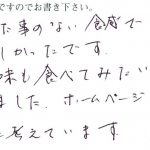 ですのでお書き下さい。
た事のない食感で
しかったです。
味も食べてみたい
ました。ホームページ
に考えています